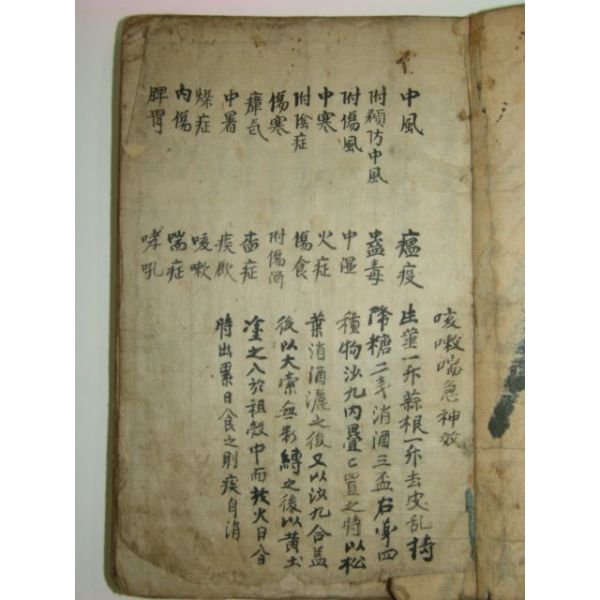 中風
附預防中風
附傷風
中寒
附陰症
傷寒
瘴氣
中暑
燥症
內傷
脾胃
瘟疫
蠱毒
中湿
火症
傷食
附傷酒
症
痰飲
咳嗽
喘症
哮吼
咳嗽喘急神效
生薑一升蒜根一升去皮乱搗
糖二消酒三盃右四
種物沙九內疊置之時以松
葉消酒濃之後又以沙九合盖
後以大索無数縛之後以黄土
塗之入於祖殼中而放火日
時出累日食之則痰自消